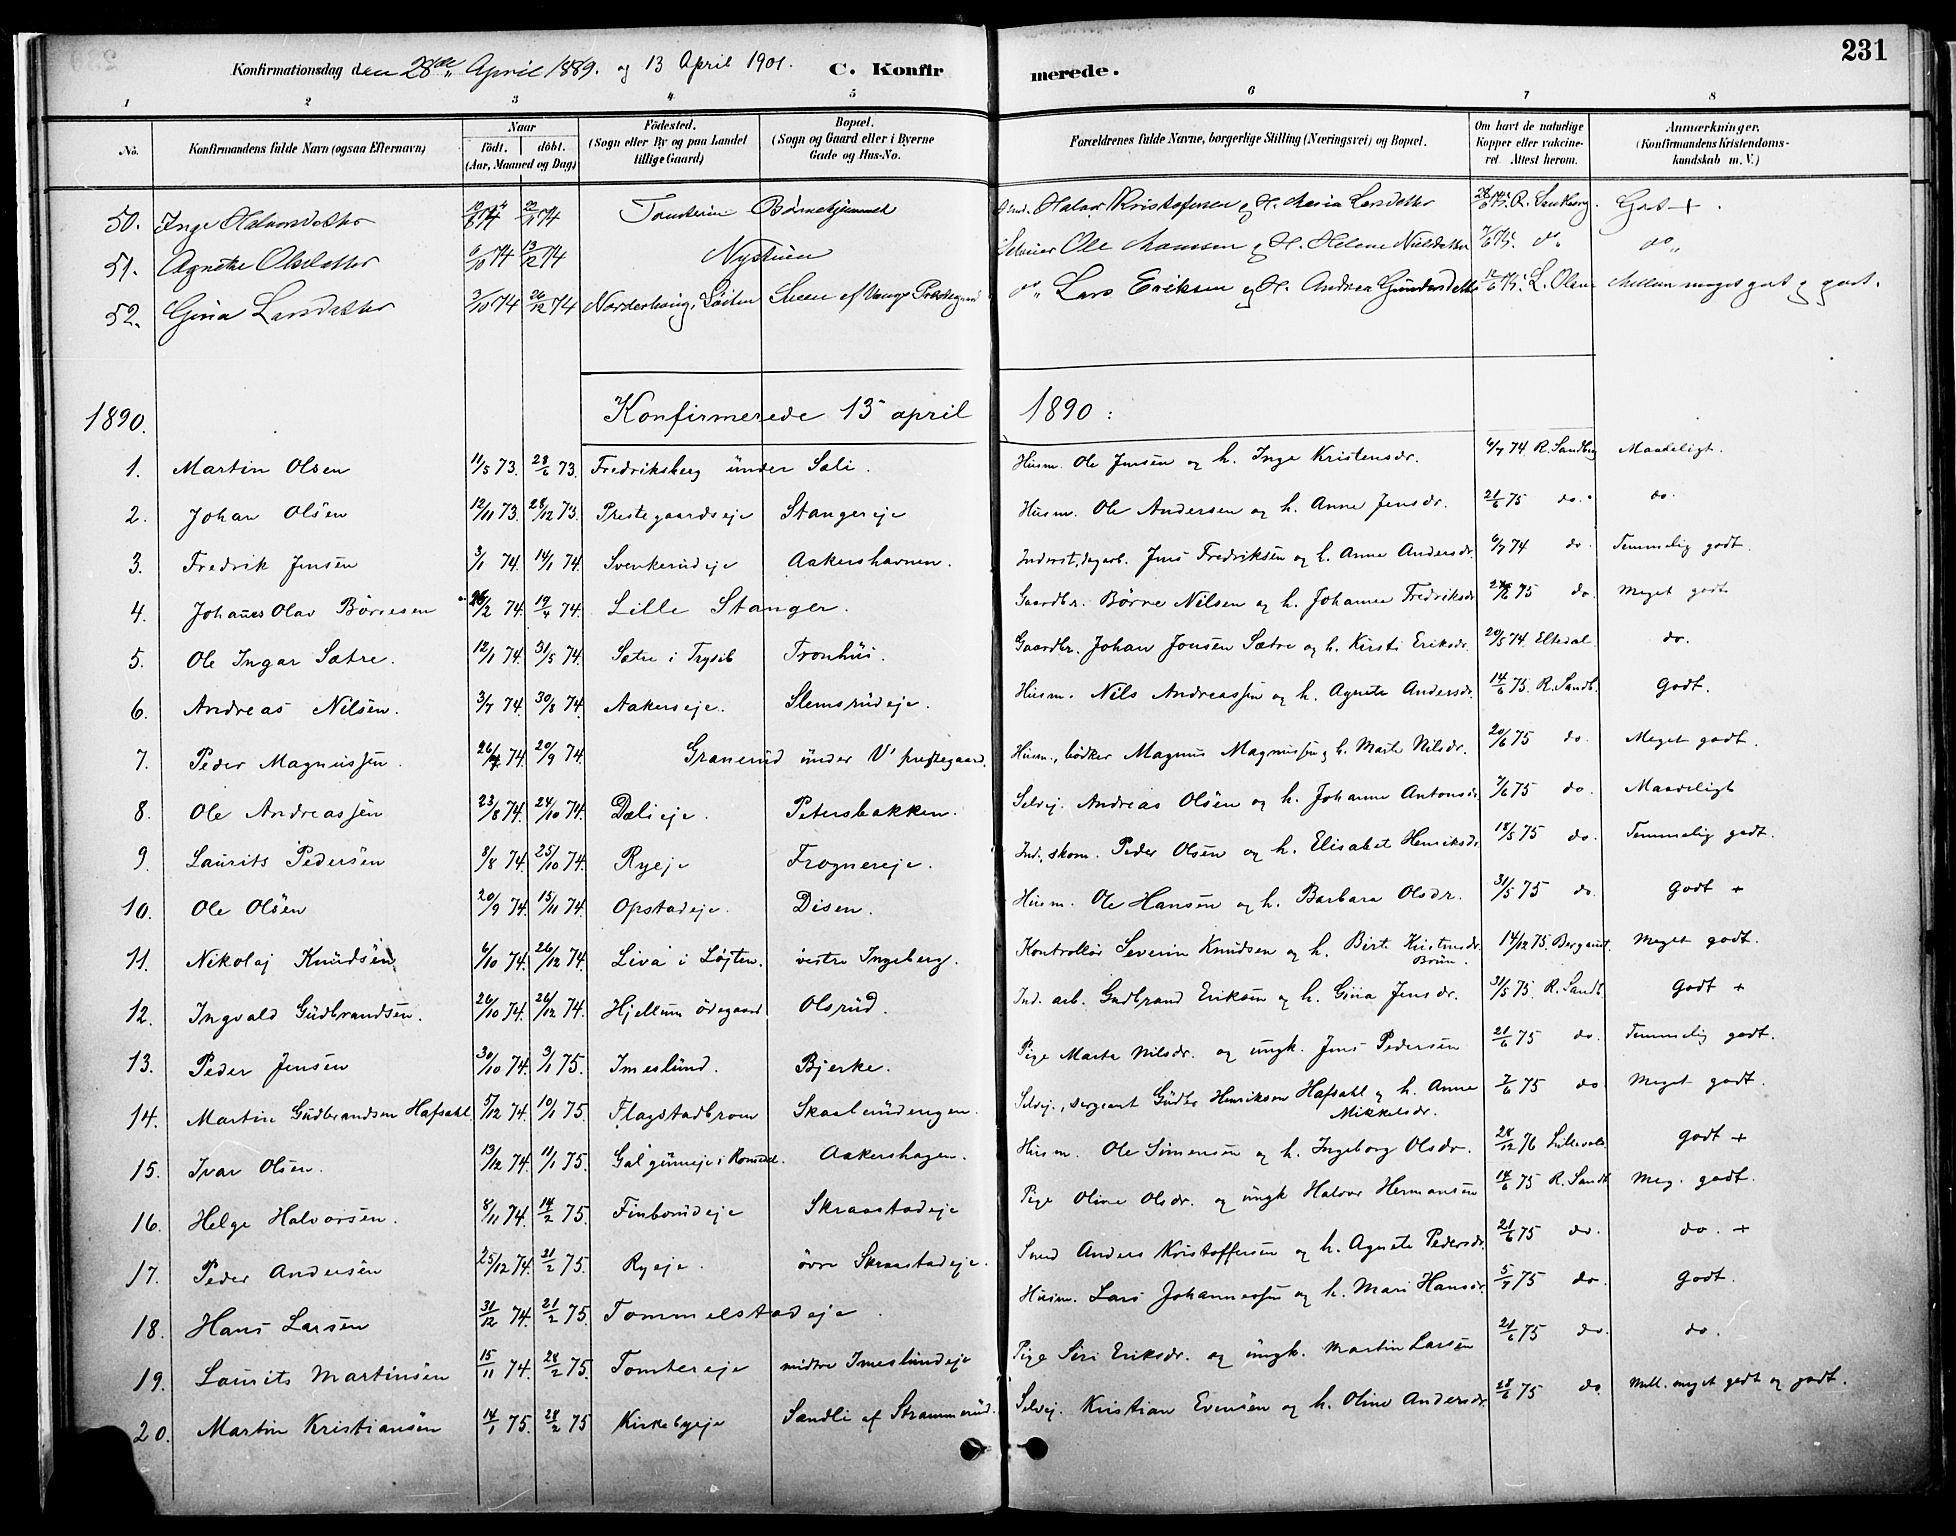 231
Konfirmationsdag den 28de April 1889. og 13 April 1901. C. Konfirmerede.
1 2 3 4 5 6 7 8
No. Konfirmandens fulde Navn (ogsaa Efternavn) Naar født. døbt. (Aar, Maaned og Dag) Fødested. (Sogn eller By og paa Landet tillige Gaard) Bopæl. (Sogn og Gaard eller i Byerne Gade og Hus-No. Forældrenes fulde Navne, borgerlige Stilling (Næringsvei) og Bopæl. Om havt de naturlige Kopper eller vakcineret. Attest herom. Anmærkninger. (Konfirmandens Kristendomskundskab m. V.)
50. Inge Halvorsdatter 74 22/ 74 Børnehjemmet Halvor Kristofersen og H. Maria Larsdatter Godt +.
51. Agnethe Olsdatter 6/10 74 13/12 74 Nystuen Selveier Ole Hansen og H. Helene Nielsdatter do. do.
52. Gina Larsdatter 3/10 74 26/12 74 Norderhaug, Løiten Sveen af Vangs Præstegaard do. Lars Eriksen og H. Andrea Gundersdatter 12/6 75. L. Olsen Mellem meget godt og godt.
1890. Konfirmerede 13 april 1890:
1. Martin Olsen 11/5 73. 28/6 73. Fredriksberg under Sali. Husm. Ole Jensen og h. Inge Kristensdr. 6/7 74. R. Sandberg Maadeligt.
2. Johan Olsen 12/11 73. 28/12 73. Prestegaardseje Stangereje Husm. Ole Andersen og h. Anne Jensdr. 21/6 75 do. do.
3. Fredrik Jensen 3/1 74. 14/1 74. Svenkerudeje Aakershavnen. Inderst, dagarb. Jens Fredriksen og h. Anne Andersdr. 6/7 74 do. Temmelig godt.
4. Johanes Olav Børresen 26/2 74. 19/4 74. Lille Stanger. Gaardbr. Børre Nilsen og h. Johanne Fredriksdr. 75 do. Meget godt
5. Ole Ingar Sætre. 12/1 74. 31/5 74. Sætre i Trysil Tronhus. Gaardbr. Johan Jonsen Sætre og h. Kirsti Eriksdr. 20/5 74. Eltedal do.
6. Andreas Nilsen. 3/7 74. 30/8 74. Aakerseje. Slemsrudeje. Husm. Nils Andreassen og h. Agnete Andersdr. 14/6 75. R. Sandb. Godt.
7. Peder Magnussen. 26/7 74. 20/9 74. Granerud under V' prestegaard. Husm., bødker Magnus Magnussen og h. Marte Nilsdr. 20/6 75 do. Meget godt.
8. Ole Andreassen 23/8 74. 24/10 74. Dælieje. Petersbakken. Selvej. Andreas Olsen og h. Johanne Antonsdr. 7/6 75 do. Maadeligt
9. Laurits Pedersen 8/8 74. 25/10 74. Ryeje Frognereje. Ind., skom. Peder Olsen og h. Elisabet Henriksdr. 18/5 75 do. Temmelig godt.
10. Ole Olsen 20/9 74. 15/11 74. Opstadeje. Disen. Husm. Ole Hansen og h. Barbara Olsdr. 31/5 75 do. Godt +
11. Nikolaj Knudsen 6/10 74. 26/12 74. Liva i Løjten. vestre Ingeberg. Kontrollør Severin Knudsen og h. Birte Kristensdr. Brun. 14/12 75. Meget godt.
12. Ingvald Gudbrandsen. 26/10 74. 26/12 74. Hjellum ødegaard Olsrud. Ind. arb. Gudbrand Eriksen og h. Gina Jensdr. 31/5 75. R. Sandb. Godt +
13. Peder Jensen 30/10 74. 3/1 75. Imeslund. Bjerke. Pige Marte Nilsdr. og ungk. Jens Pedersen 21/6 75 do. Temmelig godt.
14. Martin Gudbrandsen Hafsahl 5/12 74. 10/1 75. Flagstadbroen Skaalerudengen. Selvej., sergeant Gudbr. Henriksen Hafsahl og h. Anne Mikkelsdr. 7/6 75 do. Meget godt.
15. Ivar Olsen. 13/12 74. 11/1 75. Aakershagen. Husm. Ole Simensen og h. Ingeborg Olsdr. 28/12 76 Godt +
16. Helge Halvorsen. 8/11 74. 14/2 75. Finborudeje Skraastadeje Pige Oline Olsdr. og ungk Halvor Hermansen 14/6 75 R. Sandb. Meg. godt.
17. Peder Andersen 25/12 74. 21/2 75. Ryeje. øvre Skraastadeje. Smed Anders Kristoffersen og h. Agnete Pedersdr. 21/6 75 do. do. +
18. Hans Larsen 31/12 74. 21/2 75. Tommelstadeje. Husm. Lars Johannessen og h. Mari Hansdr. 5/7 75 do. Godt.
19. Laurits Martinsen 15/11 74. 28/2 75. Tomtereje midtre Imeslundeje Pige Siri Eriksdr. og ungk. Martin Larsen 21/6 75 do. do.
20. Martin Kristiansen 14/1 75. 28/2 75 Kirkebyeje Sandli af Strammerud. Selvej. Kristian Evensen og h. Oline Andersdr. 28/6 75 do. Mell. meget godt og godt.